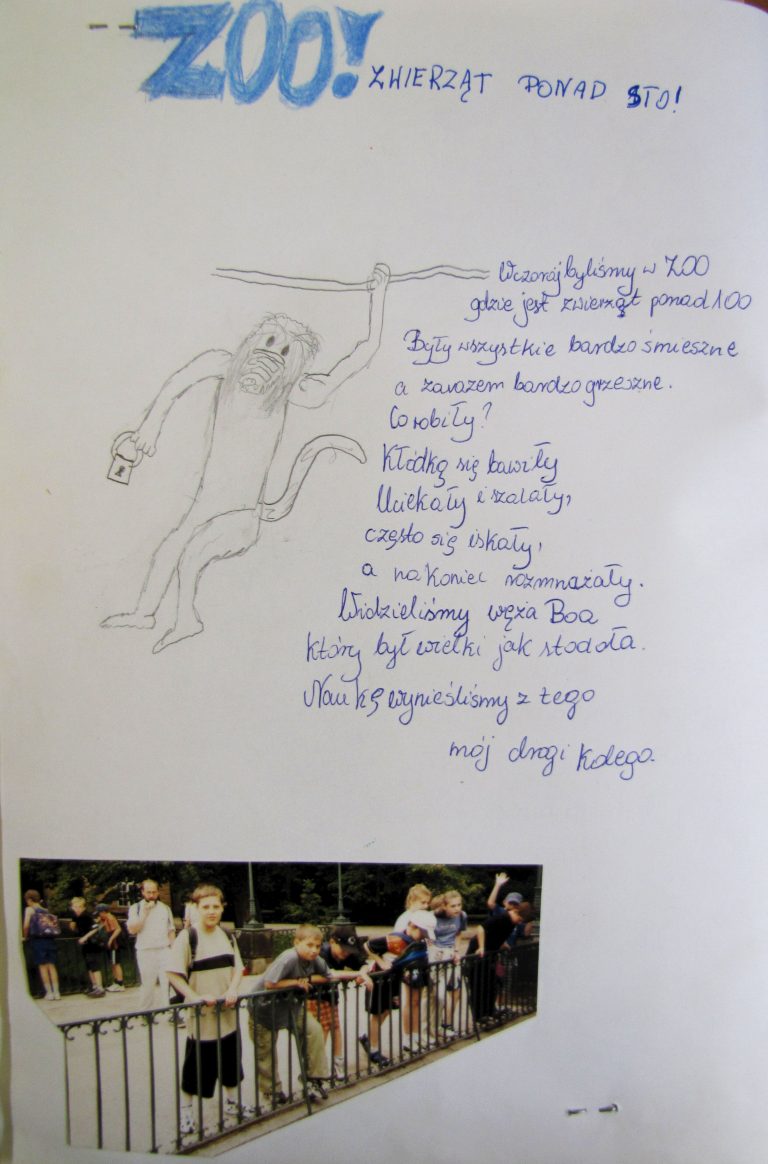 ZOO! ZWIERZĄT PONAD STO!
Wczoraj byliśmy w ZOO
gdzie jest zwierząt ponad 100
Były wszystkie bardzo śmieszne
a zarazem bardzo grzeszne.
Co robiły?
Kłódką się bawiły
Uciekały i szalały,
często się iskały,
a na koniec rozmnażały.
Widzieliśmy węża Boa
który był wielki jak stodoła.
Naukę wynieśliśmy z tego
mój drogi kolego.